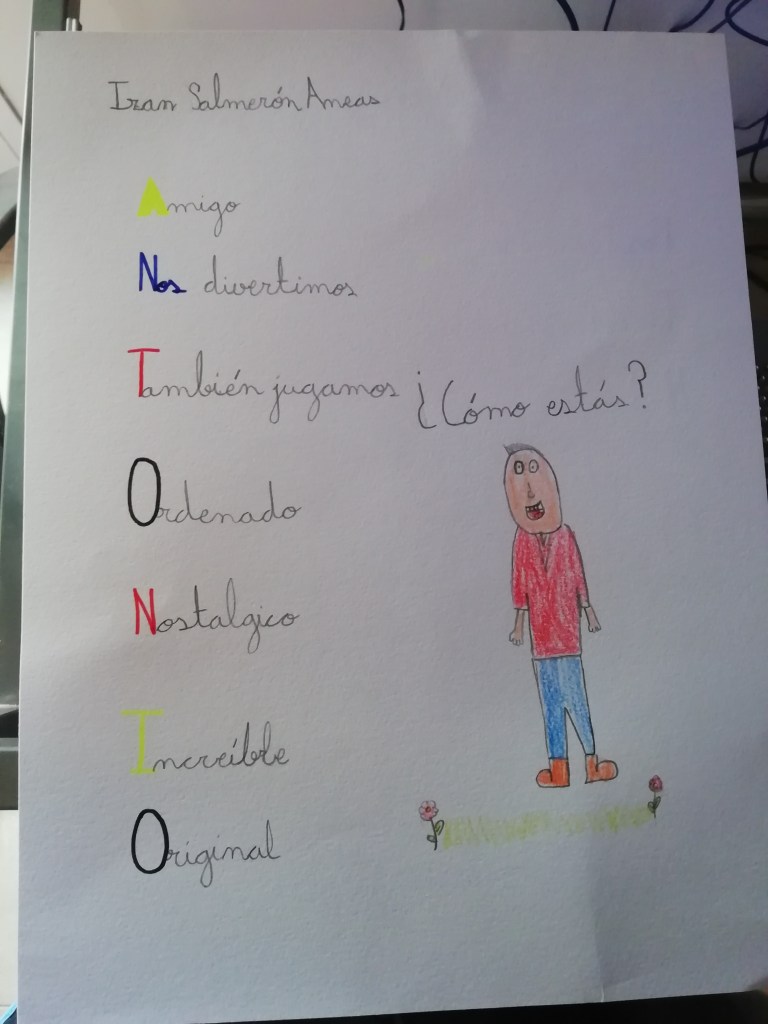 Izan Salmerón Aneas
Amigo
Nos divertimos
También jugamos ¿Cómo estás?
Ordenado
Nostalgico
Increíble
Original